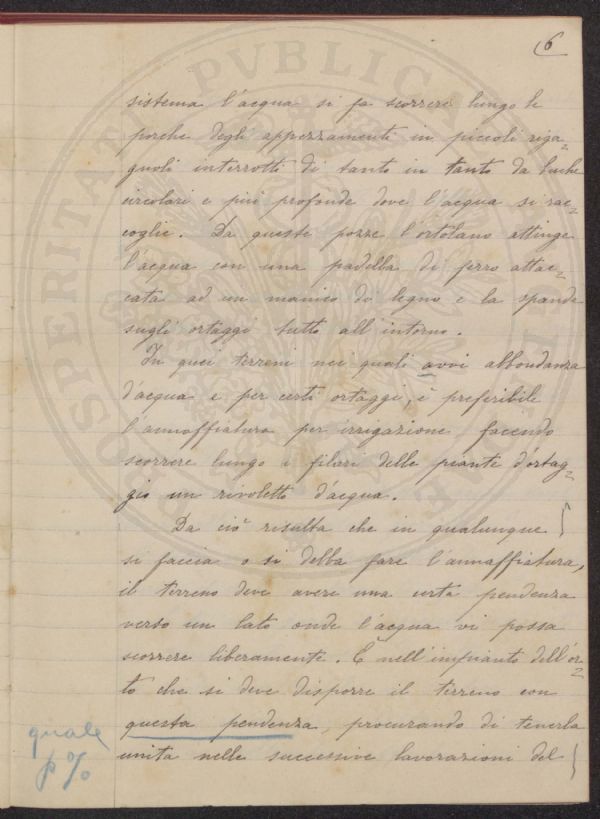 6
sistema l'acqua si fa scorrere lungo le
porche degli appezzamenti in piccoli riga-
gnoli interrotti di tanto in tanto da buche
circolari e più profonde dove l'acqua si rac-
coglie. Da queste pozze l'ortolano attinge
l'acqua con una padella di ferro attac-
cata ad un manico di legno e la spande
sugli ortaggi tutto all'intorno.
In quei terreni nei quali avvi abbondanza
d'acqua e per certi ortaggi, è preferibile
l'annaffiatura per irrigazione facendo
scorrere lungo i filari delle piante d'ortag-
gio un rivoletto d'acqua.
Da ciò risulta che in qualunque
si faccia o si debba fare l'annaffiatura,
il terreno deve avere una certa pendenza
verso un lato onde l'acqua vi possa
scorrere liberamente. È nell'impianto dell'or-
to che si deve disporre il terreno con
questa pendenza, procurando di tenerla
unita nelle successive lavorazioni del
quale
p %
PROSPERITATI PVBLICAE